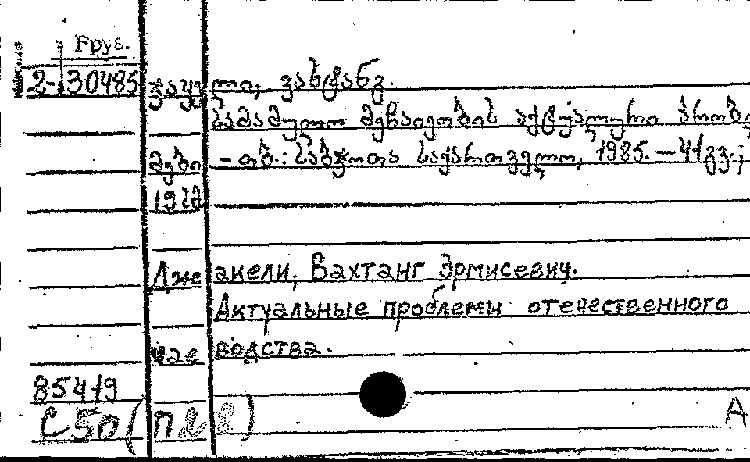 Груз.
2-30485 ჯაყელი, ვახტანგ.
სამამულო მეჩაიეობის აქტუალური პრობლ
მები - თბ.: საბჭოთა საქართველო, 1985. – 41გვ.;
19სმ
Джакели, Вахтанг Эрмисевич.
Актуальные проблемы отечественного
чаеводства.
85419
С50(П22)
А